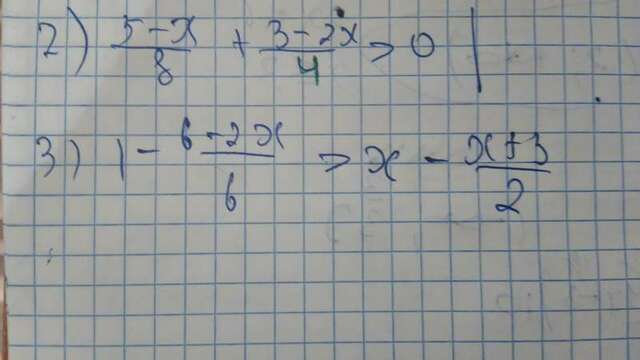 2) (5-x)/8 + (3-2x)/4 > 0
3) 1 - (6-2x)/6 > x - (x+3)/2